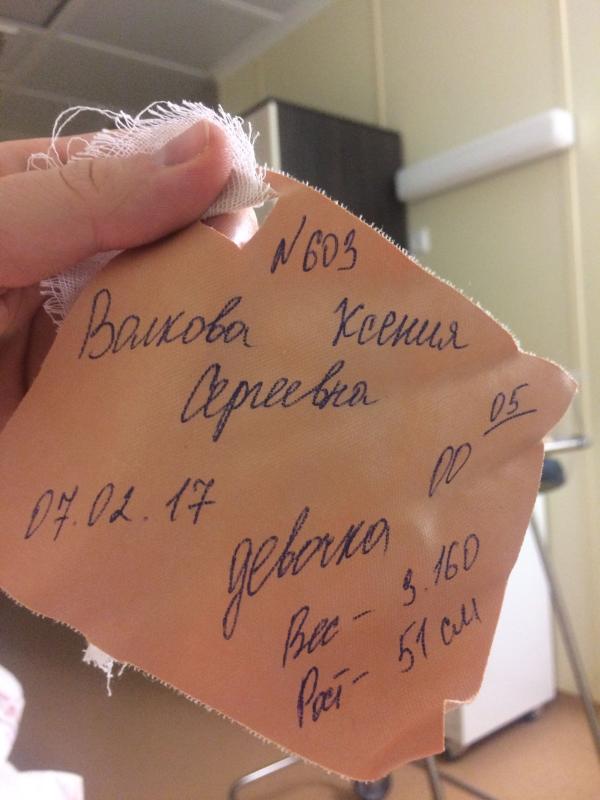 N603
Волкова Ксения
Сергеевна
07.02.17 00 05
девочка
Вес - 3.160
Рост - 51 см